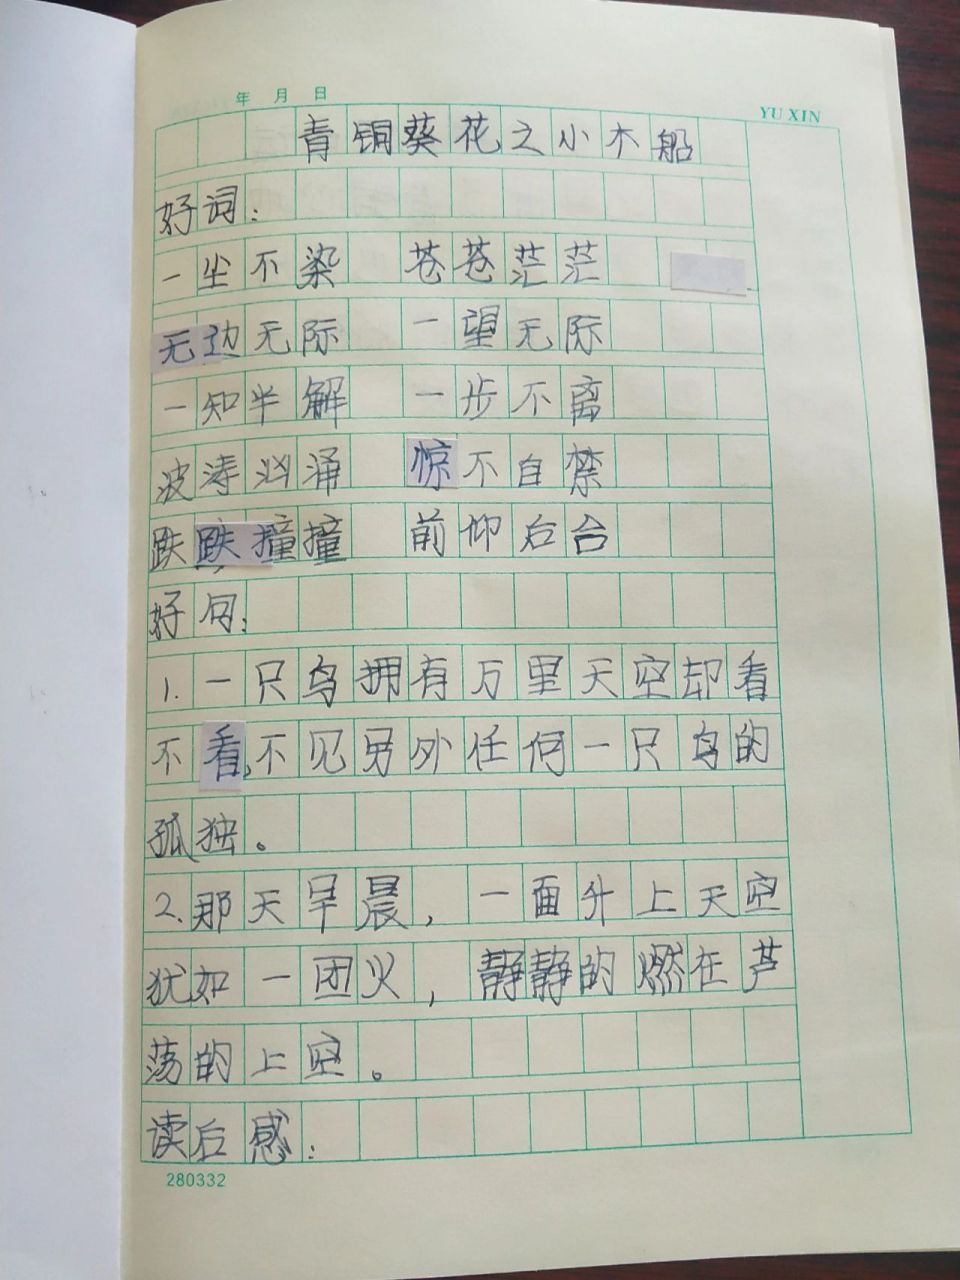 年 月 日
YU XIN
青铜葵花之小木船
好词：
一尘不染 苍苍茫茫
无边无际 一望无际
一知半解 一步不离
波涛汹涌 惊不自禁
跌跌撞撞 前仰后合
好句：
1.一只鸟拥有万里天空却看
不看不见另外任何一只鸟的
孤独。
2.那天早晨，一面升上天空
犹如一团火，静静的燃在芦
荡的上空。
读后感：
280332